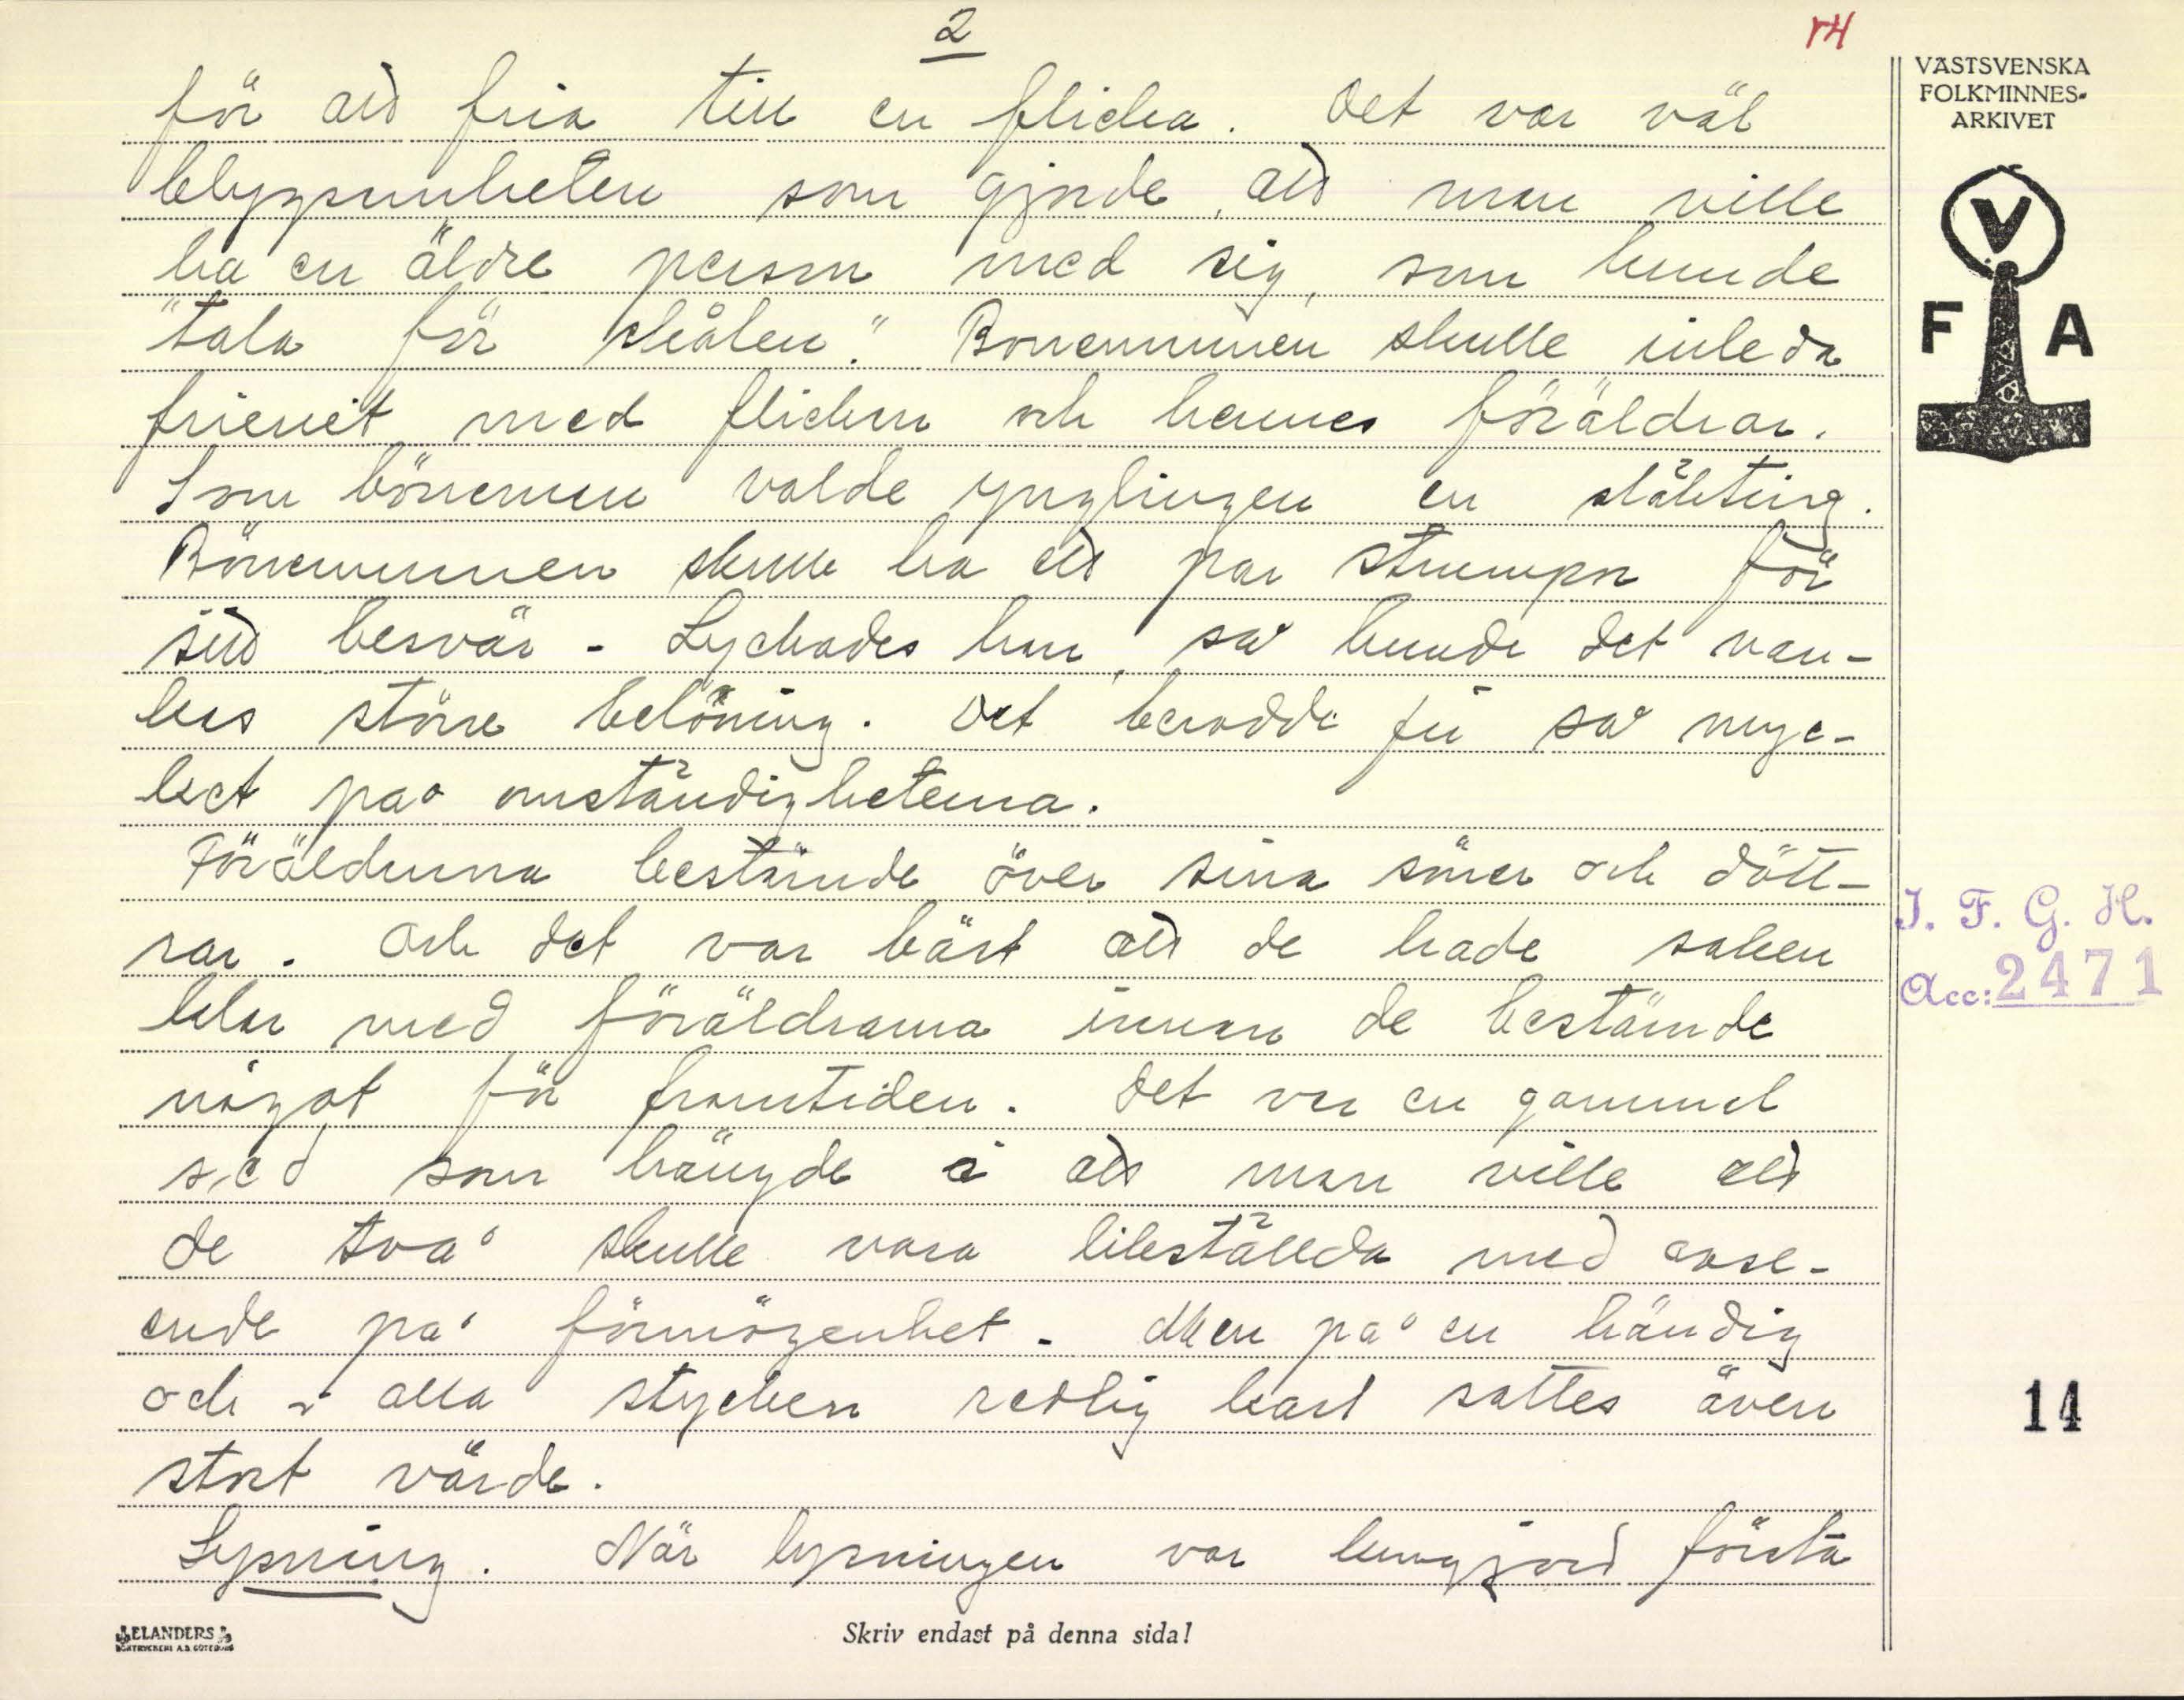 2
för att fria till en flicka. Det var väl
blygsamheten som gjorde, att man ville
ha en äldre person med sig, som kunde
"tala för skålen." Bonemannen skulle inleda
frieriet med flickan och hennes föräldrar.
Som böneman valde ynglingen en släkting.
Bönemannen skulle ha ett par strumpor för
sitt besvär - Lyckades han, så kunde det van-
kas större belöning. Det berodde ju så myc-
ket på omständigheterna.
Föräldrarna bestämde över sina söner och dött-
rar. Och det var bäst att de hade saken
klar med föräldrarna innan de bestämde
något för framtiden. Det var en gammal
sed som hängde i att man ville att
de två skulle vara likställda med avse-
ende på förmögenhet. Men på en händig
och i alla stycken redlig karl sattes även
stort värde.
Lysning. När lysningen var kungjord första
Skriv endast på denna sida!
ELANDERS
BOKTRYCKERI A.B. GÖTEBORG
VÄSTSVENSKA
FOLKMINNES-
ARKIVET
V
F A
I. F. G. H.
Acc: 2471
14